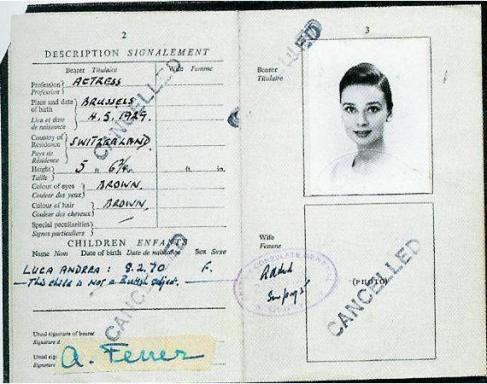 2
DESCRIPTION SIGNALEMENT
Bearer Titulaire
Wife Femme
Profession
Profession
ACTRESS
Place and date of birth
BRUSSELS
Lieu et date de naissance
4.5.1929.
Country of Residence
SWITZERLAND
Pays de Résidence
Height
Taille
5 6¾
ft. in.
Colour of eyes
Couleur des yeux
BROWN.
Colour of hair
Couleur des cheveux
BROWN.
Special peculiarities
Signes particuliers
CHILDREN ENFANTS
Name Nom Date of birth Date de naissance Sex Sexe
LUCA ANDREA : 8.2.70 F.
This child is not a British subject.
Usual signature of bearer
Signature d
Usual sig
Signature
A. Ferrer
CANCELLED
CANCELLED
3
Bearer
Titulaire
Wife
Femme
(PHOTO)
CANCELLED